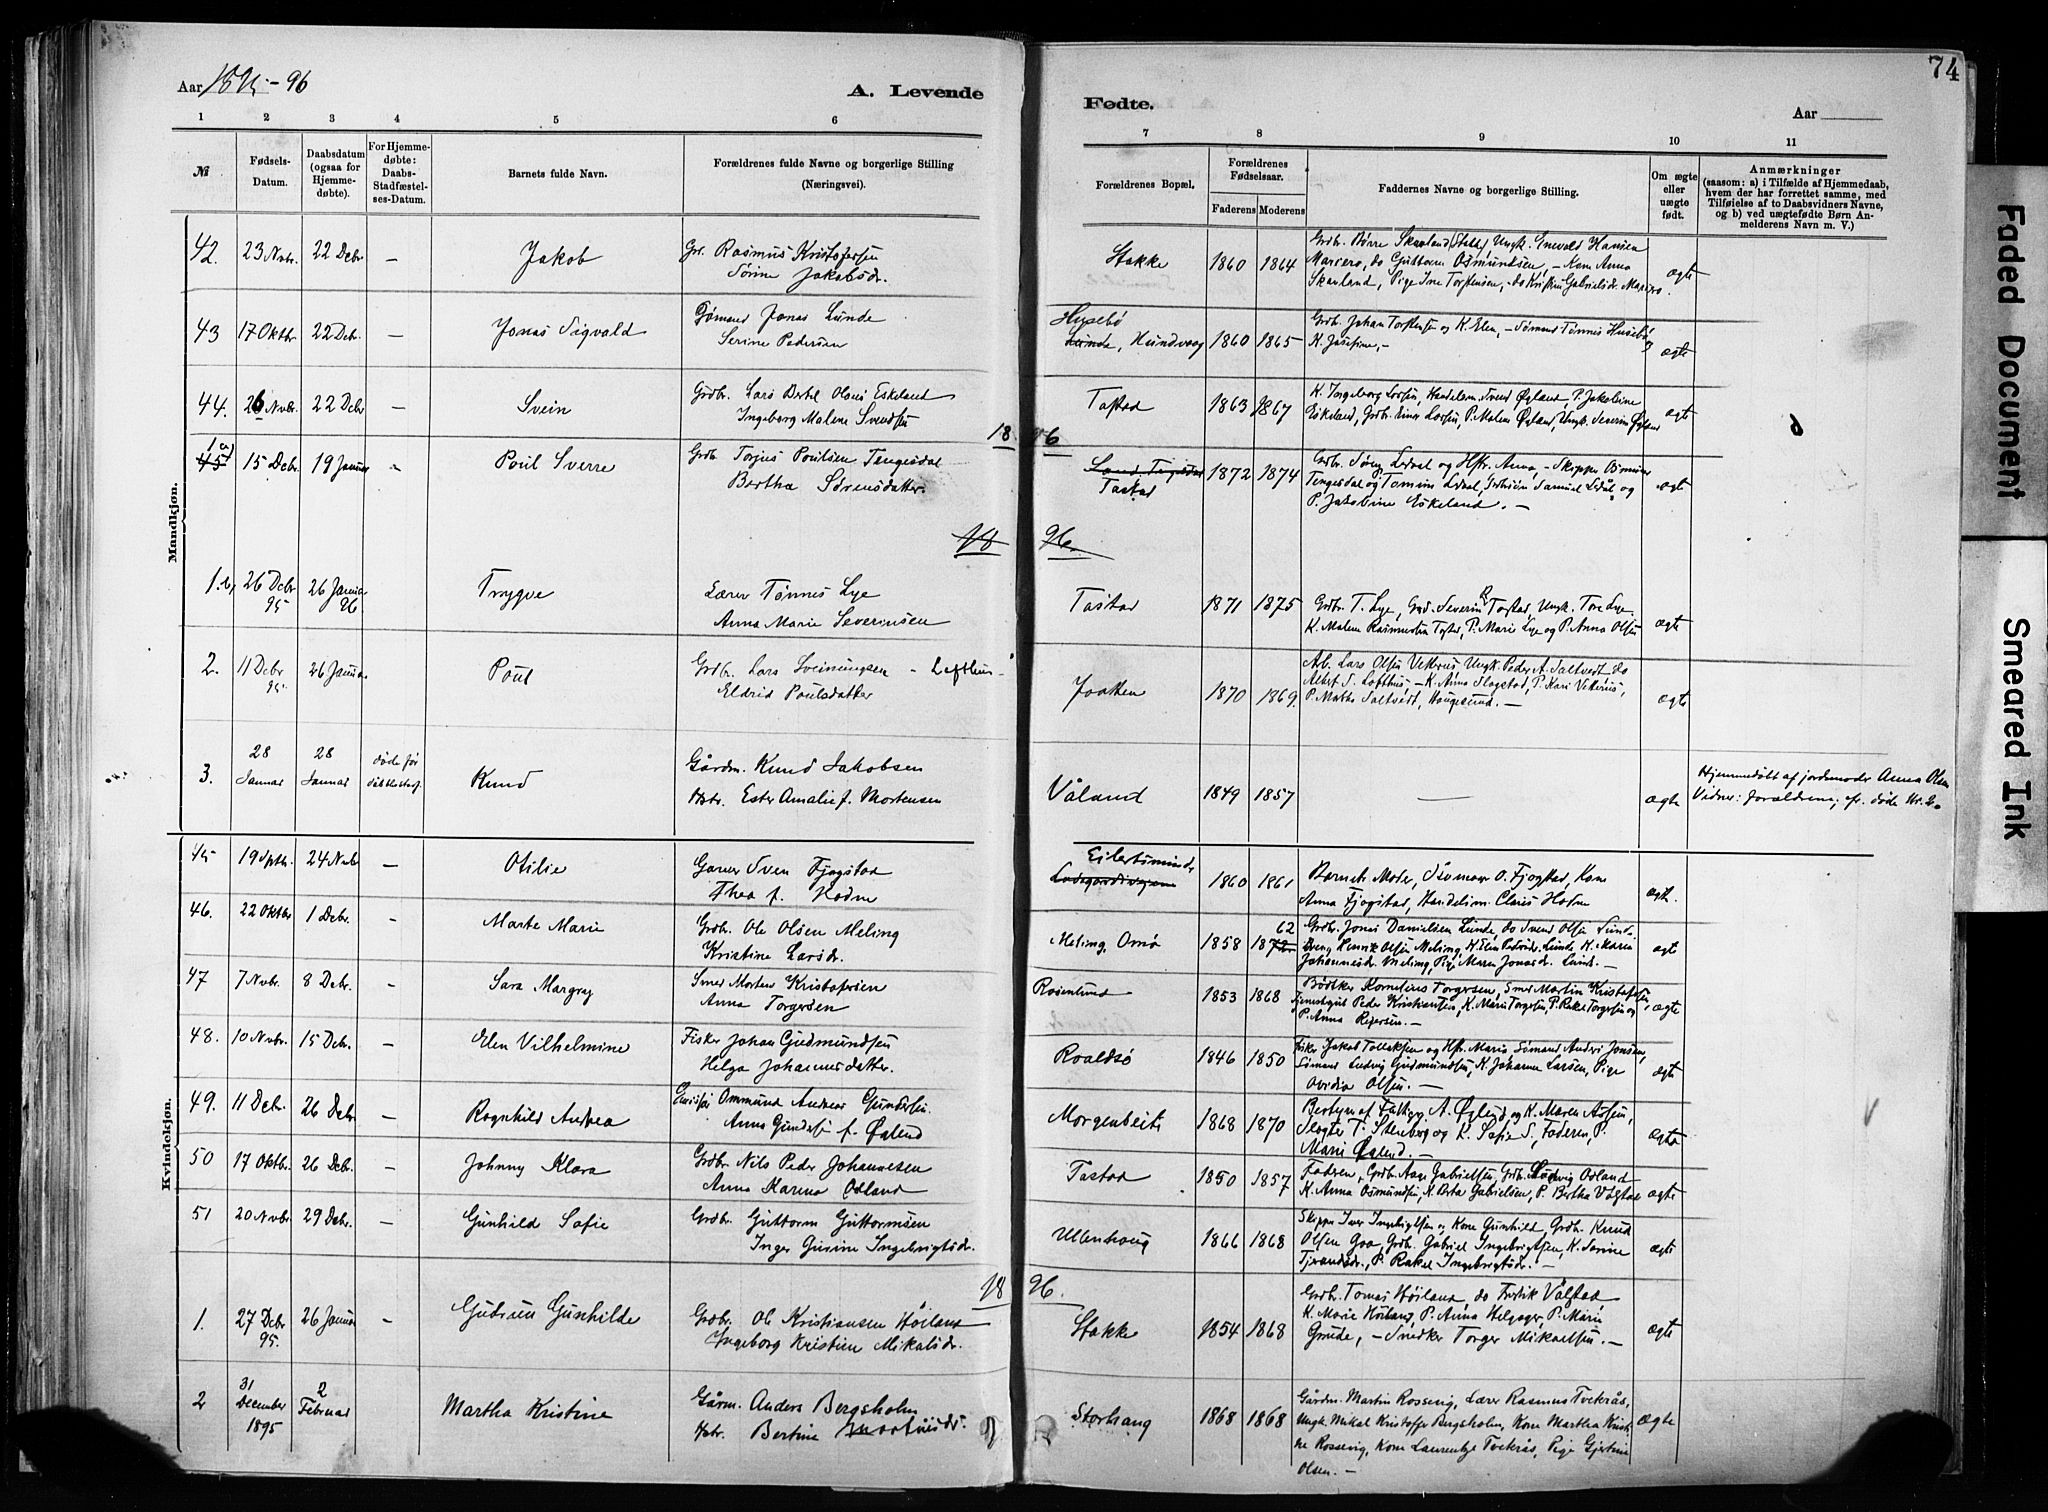 74
Aar 1895-96
A. Levende
Fødte.
Aar
1 2 3 4 5 6 7 8 9 10 11
№
Fødsels-Datum.
Daabsdatum (ogsaa for Hjemmedøbte).
For Hjemmedøbte: Daabs-Stadfæstelses-Datum.
Barnets fulde Navn.
Forældrenes fulde Navne og borgerlige Stilling (Næringsvei).
Forældrenes Bopæl.
Forældrenes Fødselsaar.
Faderens Moderens
Faddernes Navne og borgerlige Stilling.
Om ægte eller uægte født.
Anmærkninger
(saasom: a) i Tilfælde af Hjemmedaab,
hvem der har forrettet samme, med
Tilføielse af to Daabsvidners Navne,
og b) ved uægtefødte Børn Anmelderens Navn m. V.)
Mandkjøn.
42. 23 Nvbr. 22 Debr — Jakob
Gr. Rasmus Kristofersen
Sørine Jakobsdr.
Stokke 1860 1864
Grdb. Børre Skanland (Stokke) Ungk. Enevald Hansen
Marcero, do Guttorm Osmundsen, — Kone Anna
Skanland, Pige Ine Torstensen, — do Kristine Gabrielsdr. Marcero.
ægte
43 17 Oktbr 22 Debr. — Jonas Sigvald
Sømand Jonas Lunde
Serine Pedersen
Hysebø
Lunde, Hundvaag 1860 1865
Grdb. Johan Torstensen og K. Elen, — Sømand Tønnes Husebø og
K. Josefine, —
ægte
44. 26 Nvbr. 22 Debr — Svein
Grdbr. Lars Bertel Olsen Eskeland
Ingeborg Malene Svendsen
Tastad 1863 1867
K. Ingeborg Larsen, Handelsm. Svend Øgland P. Jakobine
Eskeland, Grdb. Einar Larsen, P. Malene Øgland, Ungk. Severin Øgland
ægte
18 96
1 a 45 15 Debr. 19 Januar — Poul Sverre
Grdb. Torjus Poulsen Tengesdal
Bertha Sørensdatter.
Tastad 1872 1874
Grdbr. Søren Ledaal og Hstr. Anna, — Skipper Osmund
Tengesdal og Tomine Ledaal, Samuel Ledål og
P. Jakobine Eskeland. —
ægte
18 96.
1.b, 26 Debr 95 26 Januar 96 Trygve
Lærer Tønnes Lye
Anna Marie Severinsen
Tastad 1871 1875
Grdbr. T. Lye, Grd. Severin R. Tastad, Ungk. Tore Lye
K. Malene Rasmusdtr. Tastad, P. Marie Lye og P. Anna Olsen
ægte
2. 11 Debr 95. 26 Januar Poul
Grdb. Lars Sveinungsen - Lofthus
Eldrid Poulsdatter
Jaatten 1870 1869.
Arb. Lars Olsen Vetrhus Ungk. Peder A. Saltvedt do
Albert S. Lofthus — K. Anna Slogstad, P. Kari Veterhus,
P. Marthe Saltvedt, Haugesund. —
ægte
3. 28 Januar 28 Januar døde før Knud
Gårdm. Knud Jakobsen
Hstr. Ester Amalie f. Mortensen
Våland 1849 1857 — ægte
Hjemmedøbt af jordemoder Anna Olsen
Vidner: forældrene, jfr. døde Nr. 2.
Kvindekjøn.
45 19 Spth. 24 Nvbr — Otilie
Garver Sven Fjogstad
Thea f. Hodne
Eilertsminde
Ladegaardsveien 1860 1861
Barnets Moder, Styrmand O. Fjogstad, Kone
Anna Fjogstad, Handelsm. Claus Hodne
ægte.
46. 22 Oktbr 1 Debr. — Marte Marie
Grdb. Ole Olsen Meling
Kristine Larsdr.
Meling, Omø 1858 1872 62
Grdb. Jonas Danielsen Lunde, do Svend Olsen Lunde
Dreng Henrik Olsen Meling, K. Elen Pedersdr. Lunde K. Maria
Johannesdr. Meling, Pige Maren Jonasdr. Lunde. —
ægte
47 7 Nvbr. 8 Debr. — Sara Margry
Smed Morten Kristofersen
Anna Torgersen
Rosenlund 1853 1868
Bødtker Kornelius Torgersen, Smed Martin Kristofersen,
Tjenestegut Peder Kristiansen, K. Marie Torgersen, P. Rakel Torgersen og
P. Anna Reiersen. —
ægte
48. 10 Nvbr. 15 Debr. — Elen Vilhelmine
Fisker Johan Gudmundsen
Helga Johannesdatter.
Roaldsø 1846 1850
Fisker Jakob Tollaksen og Hstr. Maria Sømand Anders Jonsen,
Sømand Ludvig Gudmundsen, K. Johanne Larsen, Pige
Ovidia Olsen. —
ægte
49. 11 Debr. 26 Debr — Ragnhild Andrea
Ommund Andreas Gundersen
Anna Gundersen f. Øglend
Morgenbeits 1868 1870
Bestyrer af Fattigg A. Øglend og K. Maren Aasen,
Slagter T. Stenberg og K. Sofie S., Faderen, P.
Marie Øglend. —
ægte
50 17 Oktbr. 26 Debr. — Johnny Klara
Grdbr Nils Peder Johannesen
Anna Karina Odland
Tastad 1850 1857
Fadren, Grdb. Aage Gabrielsen, Grdb. Ludvig Odland
K. Anna Osmundsen, K. Berta Gabrielsen, P. Bertha Vålstad
ægte
51 20 Nvbr 29 Debr. — Gunhild Sofie
Grdbr. Guttorm Guttormsen
Inger Gurine Ingebrigtsdr.
Ullenhaug 1866 1868
Skipper Iver Ingebrigtsen og Kone Gunhild, Grdb. Knud
Olsen Goa, Grdb. Gabriel Ingebrigtsen, K. Sørine
Tjerandsdr., P. Rakel Ingebrigtsdr. —
ægte
18 96.
1. 27 Debr 95. 26 Januar — Gudrun Gunhilde
Grdbr. Ole Kristiansen Høiland
Ingeborg Kristine Mikalsdr.
Stokke 1854 1868
Grdb. Tomas Høiland, do Fredrik Vålstad
K. Marie Høiland, P. Anna Helgager, P. Marie
Grude, — Snedker Torger Mikaelsen. —
ægte
2 31 December 1895 2 Februar Martha Kristine
Gårdm. Anders Bergsholm
Hstr. Bertine
Storhaug 1868 1868
Gårdm. Martin Rossevig, Lærer Rasmus Tveterås,
Ungk. Mikal Kristoffer Bergsholm, Kone Martha Kristi-
ne Rossevig, Kone Laurentze Tveterås, Pige Gjertine
Olsen. —
ægte
Faded Document
Smeared Ink